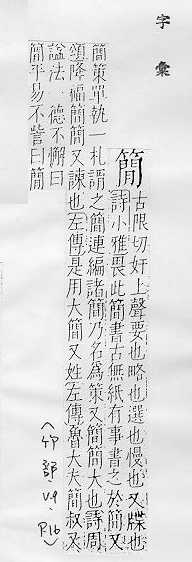 字彙
簡
古限切奸上聲要也略也選也慢也又牒也
詩小雅畏此簡書古無紙有事書之於簡又
簡策單執一札謂之簡連編諸簡乃名爲策又簡簡大也詩周
頌降福簡簡又諫也左傳是用大簡又姓左傳魯大夫簡叔又
謚法一德不懈曰
簡平易不訾曰簡
(竹部 V.9. P.16)